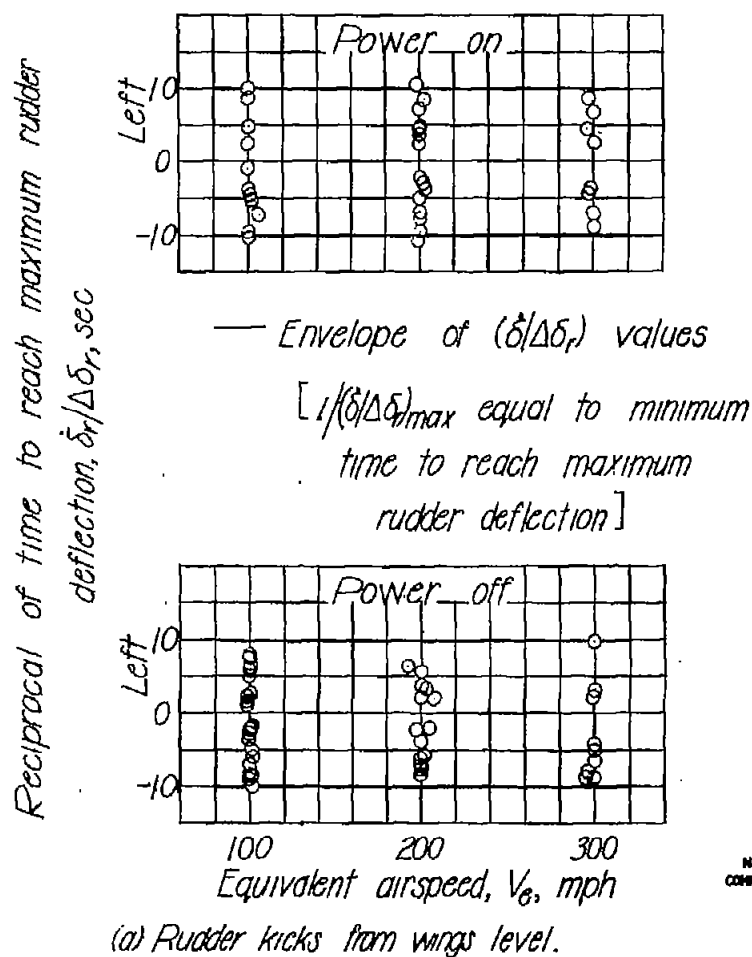 Reciprocal of time to reach maximum rudder
deflection, δ̇r/Δδr, sec
Power on
Left
10
0
-10
— Envelope of (δ̇/Δδr) values
[1/(δ̇/Δδr)max equal to minimum
time to reach maximum
rudder deflection]
Power off
Left
10
0
-10
100 200 300
Equivalent airspeed, Ve, mph
(a) Rudder kicks from wings level.